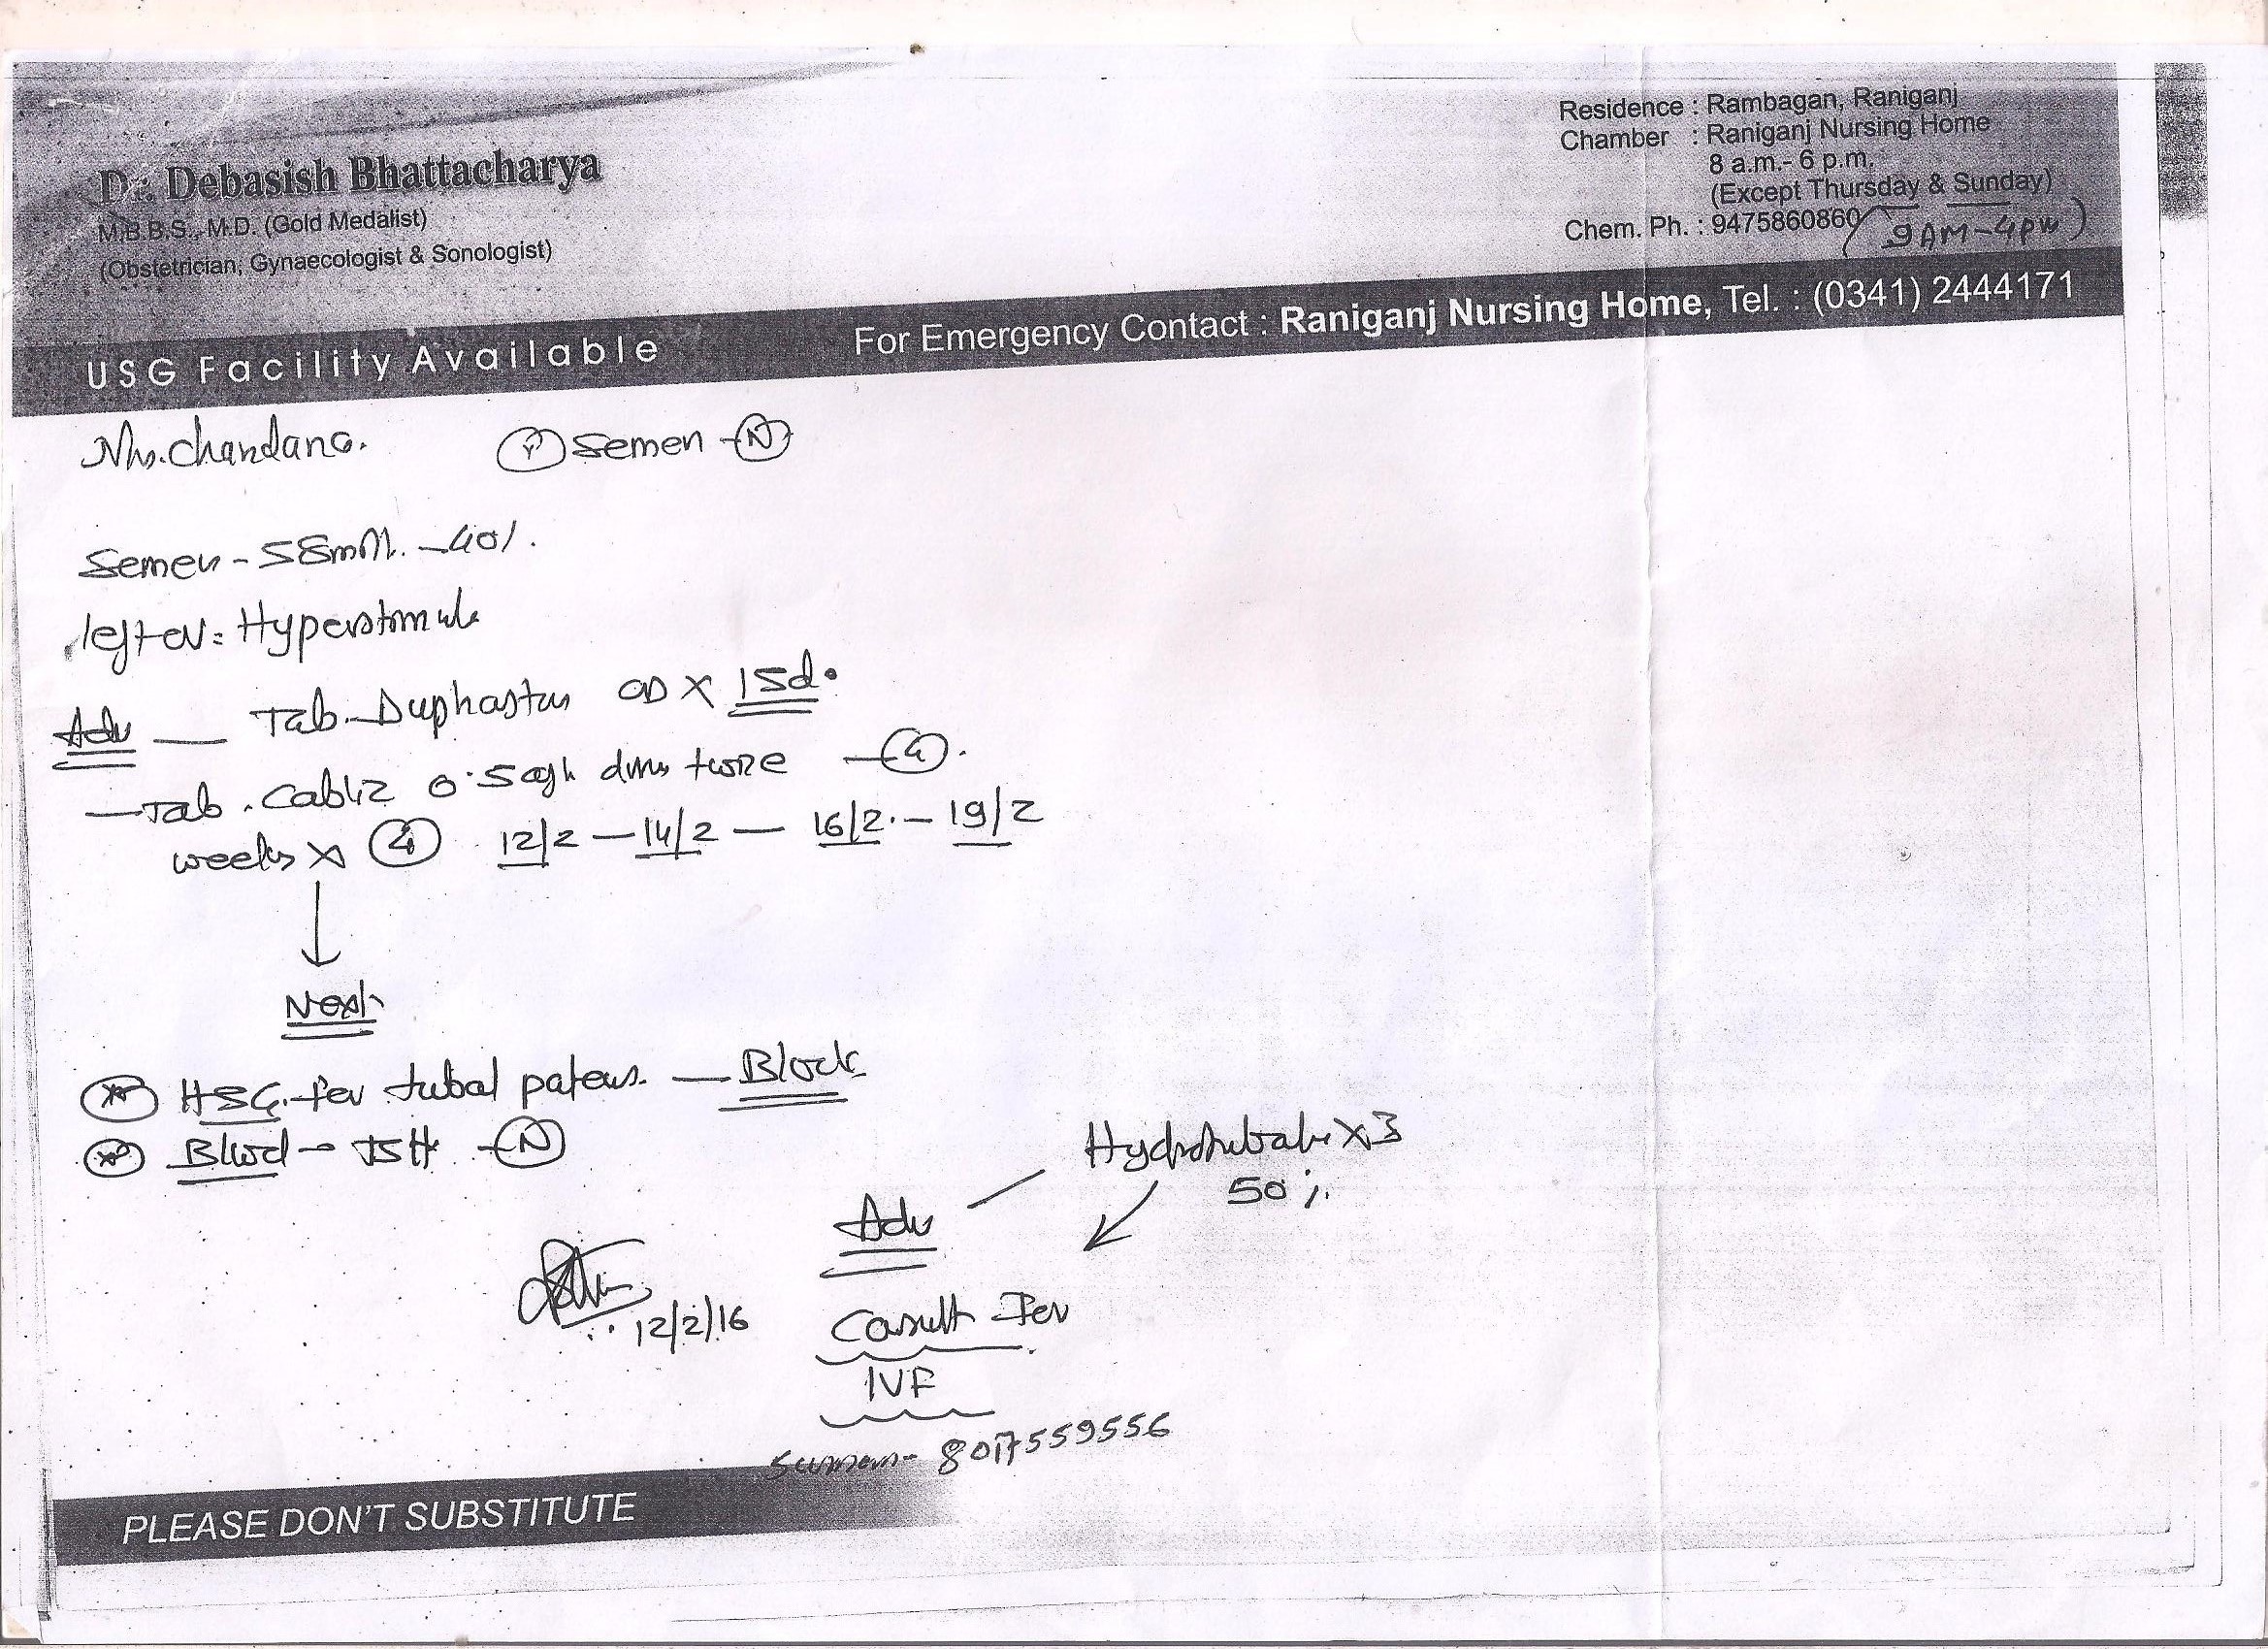 Dr. Debasish Bhattacharya
M.B.B.S., M.D. (Gold Medalist)
(Obstetrician, Gynaecologist & Sonologist)
Residence : Rambagan, Raniganj
Chamber : Raniganj Nursing Home
8 a.m.- 6 p.m.
(Except Thursday & Sunday)
Chem. Ph. : 9475860860 (9AM-4PM)
USG Facility Available
For Emergency Contact : Raniganj Nursing Home, Tel. : (0341) 2444171
Chandana. Semen - N
Semen - 58mill. - 40%.
left ov =
Adv — Tab. Duphaston OD X 15d.
— Tab. Cabliz 0.5 twice — 4.
weeks X 4 12/2 — 14/2 — 16/2. — 19/2
Next
HSG. for tubal — Block
Blood - TSH - N
X 3
50 %.
Adv
12/2/16
for
IVF
Suman - 8017559556
PLEASE DON'T SUBSTITUTE